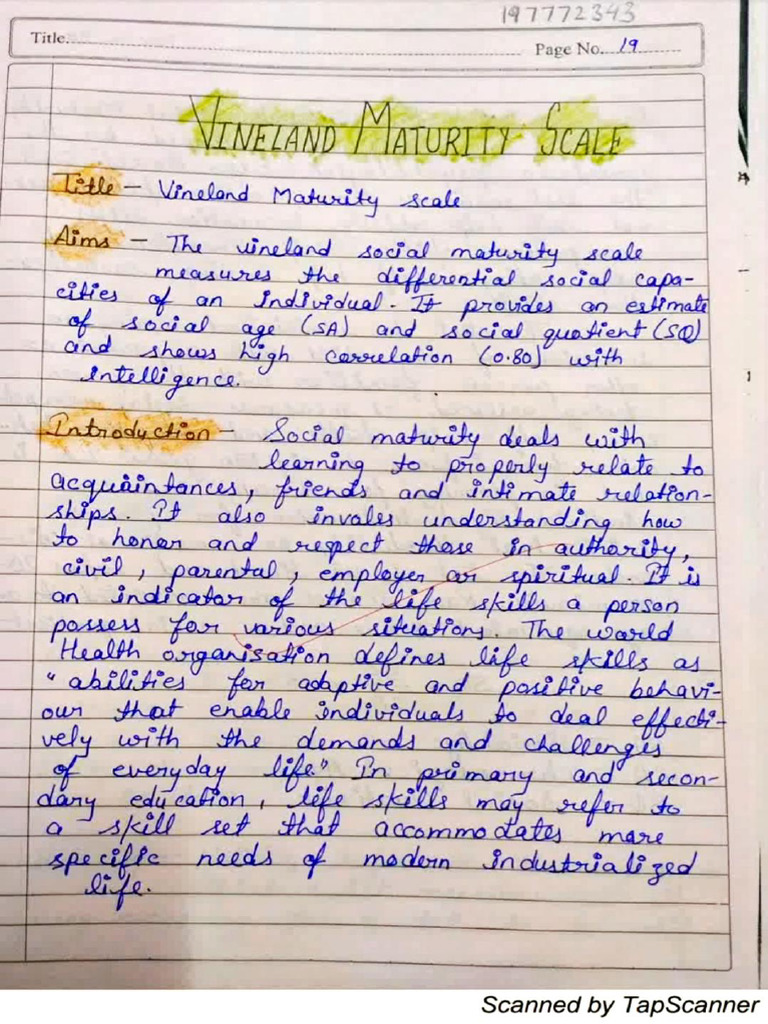 197772343
Title............ Page No. 19
VINELAND MATURITY SCALE
Title - Vineland Maturity scale
Aims - The vineland social maturity scale
measures the differential social capa-
cities of an individual. It provides an estimate
of social age (SA) and social quotient (SQ)
and shows high correlation (0.80) with
intelligence.
Introduction - Social maturity deals with
learning to properly relate to
acquaintances, friends and intimate relation-
ships. It also involes understanding how
to honor and respect those in authority,
civil, parental, employer or spiritual. It is
an indicator of the life skills a person
possess for various situations. The world
Health organisation defines life skills as
"abilities for adaptive and positive behavi-
our that enable individuals to deal effecti-
vely with the demands and challenges
of everyday life." In primary and secon-
dary education, life skills may refer to
a skill set that accommodates more
specific needs of modern industrialized
life.
Scanned by TapScanner